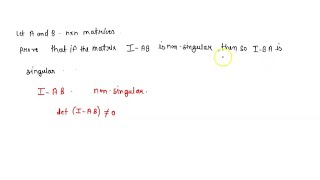 Let A and B - n×n matrices
Prove that if the matrix I-AB is non-singular then so I-BA is
singular.
I-AB. non-singular.
det (I-AB) ≠ 0